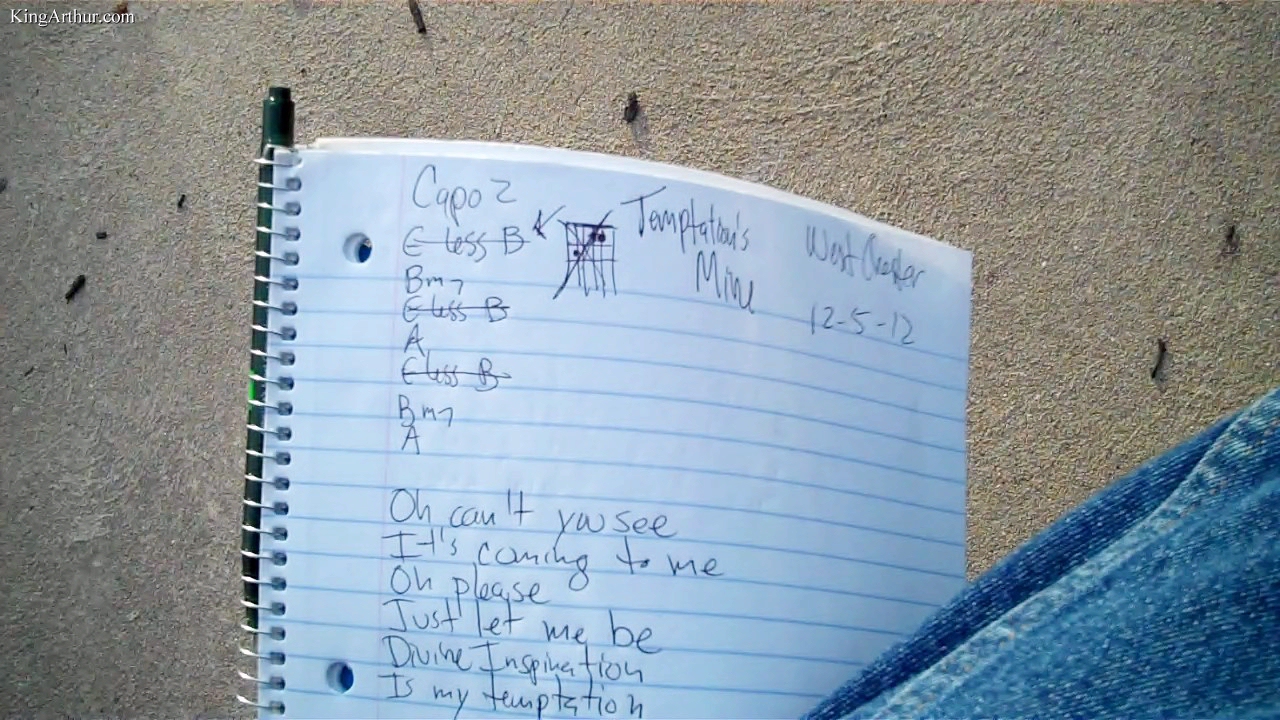 KingArthur.com
Capo 2
E less B
Bm7
E less B
A
E less B
Bm7
A
Temptation's
Mine
West Chester
12-5-12
Oh can't you see
It's coming to me
Oh please
Just let me be
Divine Inspiration
Is my temptation